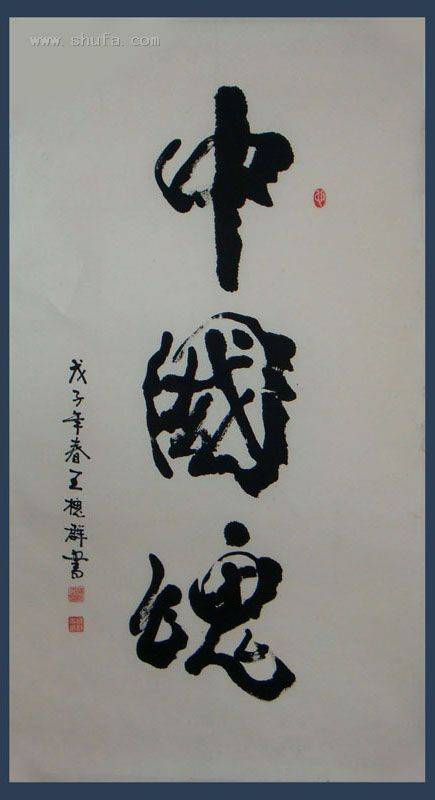 www.shufa.com
中國魂
戊子年春王槐群書